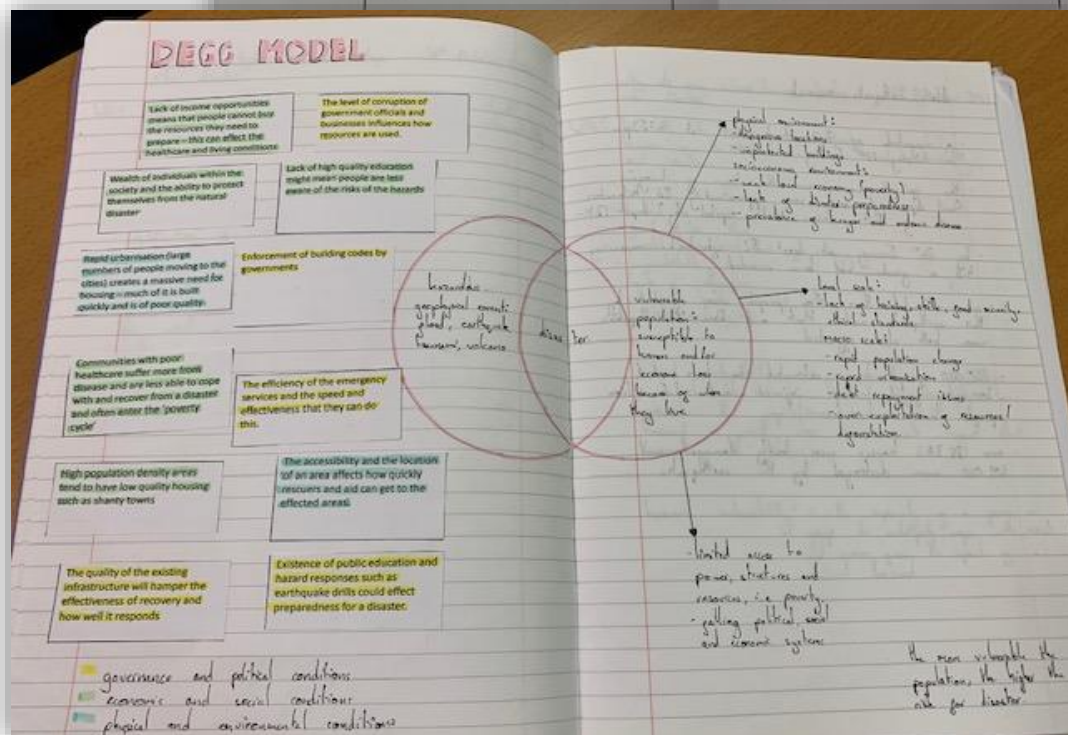 DEGG MODEL
Lack of income opportunities
means that people cannot buy
the resources they need to
prepare – this can effect the
healthcare and living conditions
The level of corruption of
government officials and
businesses influences how
resources are used.
Wealth of individuals within the
society and the ability to protect
themselves from the natural
disaster
Lack of high quality education
might mean people are less
aware of the risks of the hazards
Rapid urbanisation (large
numbers of people moving to the
cities) creates a massive need for
housing – much of it is built
quickly and is of poor quality.
Enforcement of building codes by
governments
Communities with poor
healthcare suffer more from
disease and are less able to cope
with and recover from a disaster
and often enter the 'poverty
cycle'
The efficiency of the emergency
services and the speed and
effectiveness that they can do
this.
High population density areas
tend to have low quality housing
such as shanty towns
The accessibility and the location
of an area affects how quickly
rescuers and aid can get to the
effected areas.
The quality of the existing
infrastructure will hamper the
effectiveness of recovery and
how well it responds
Existence of public education and
hazard responses such as
earthquake drills could effect
preparedness for a disaster.
governance and political conditions
economic and social conditions
physical and environmental conditions
hazardous
geophysical event:
flood, earthquake
tsunami, volcano
disaster
vulnerable
population:
susceptible to
human and/or
economic loss
because of where
they live
physical environment:
- dangerous locations
- unprotected buildings
socioeconomic environment:
- weak local economy (poverty)
- lack of disaster preparedness
- prevalence of hunger and endemic disease
local scale:
- lack of training, skills, good security,
ethical standards
macro scale:
- rapid population change
- rapid urbanisation
- debt repayment issues
- over exploitation of resources/
degradation
- limited access to
power, structures and
resources, i.e. poverty.
- failing political, social
and economic systems
the more vulnerable the
population, the higher the
risk for disaster